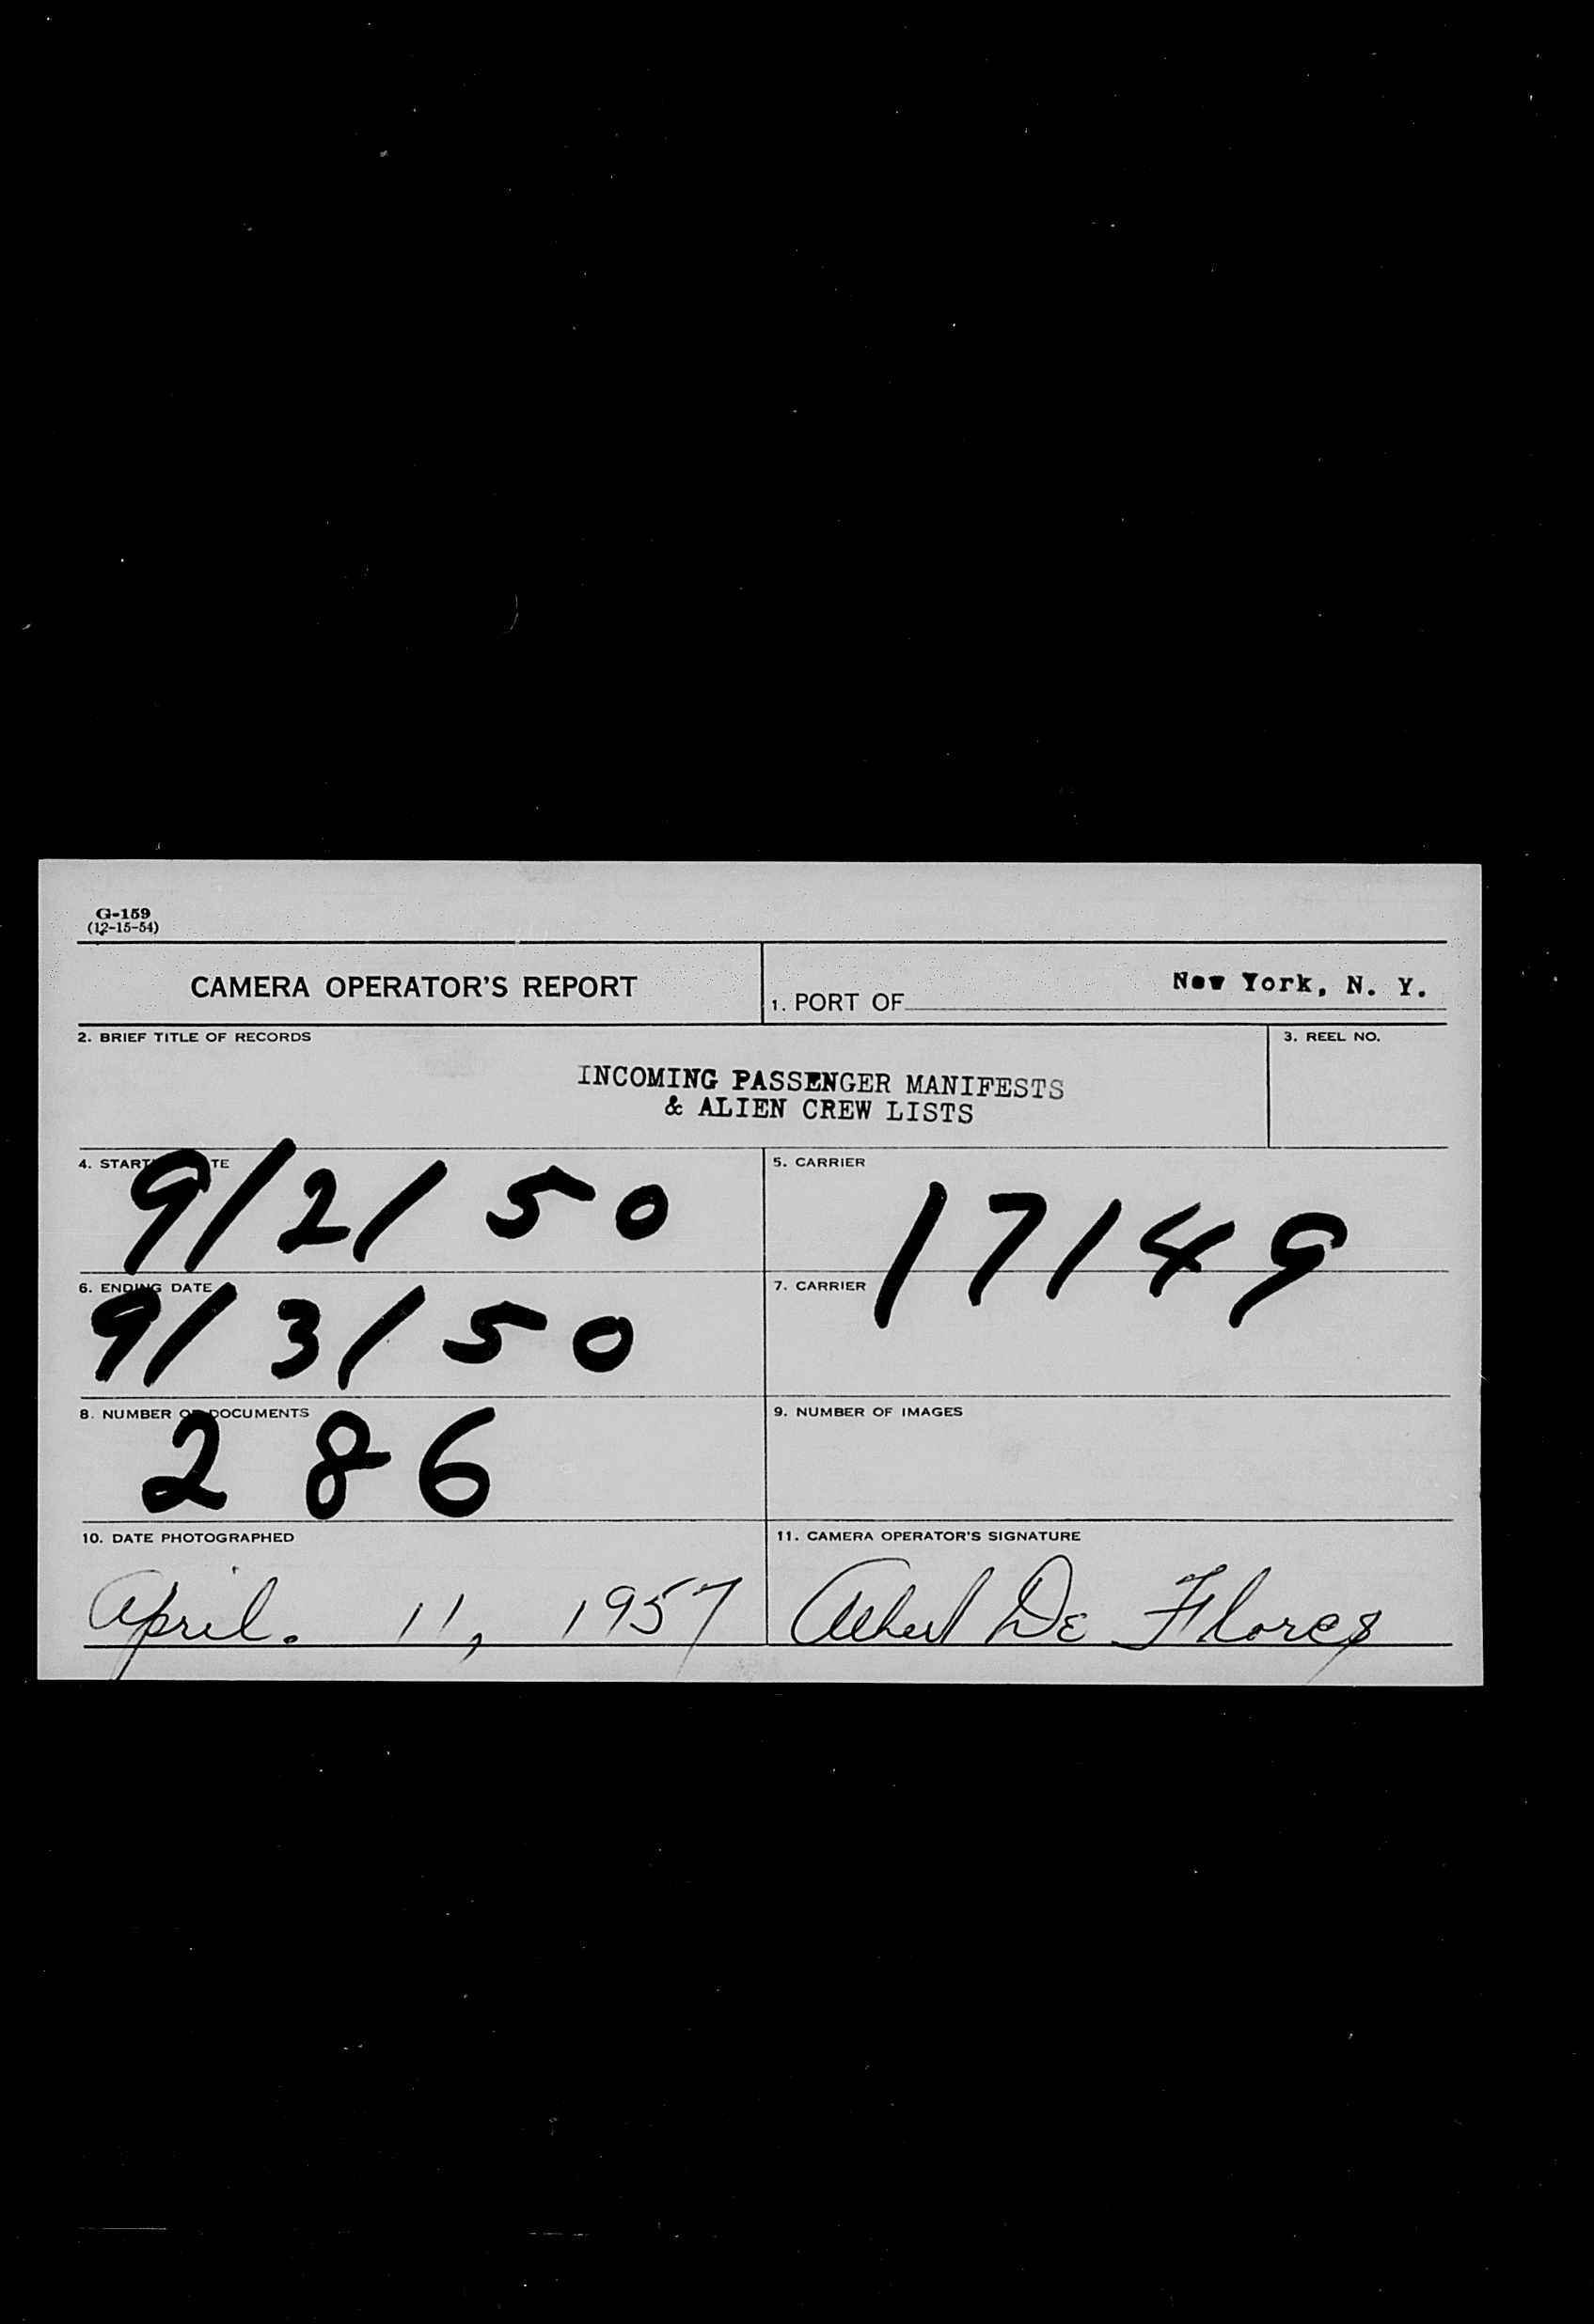 G-159
(12-15-54)
CAMERA OPERATOR'S REPORT
1. PORT OF New York, N. Y.
2. BRIEF TITLE OF RECORDS
3. REEL NO.
INCOMING PASSENGER MANIFESTS
& ALIEN CREW LISTS
4. STARTING DATE
9/2/50
5. CARRIER
17149
6. ENDING DATE
9/3/50
7. CARRIER
8. NUMBER OF DOCUMENTS
286
9. NUMBER OF IMAGES
10. DATE PHOTOGRAPHED
April. 11, 1957
11. CAMERA OPERATOR'S SIGNATURE
Albert De Flores